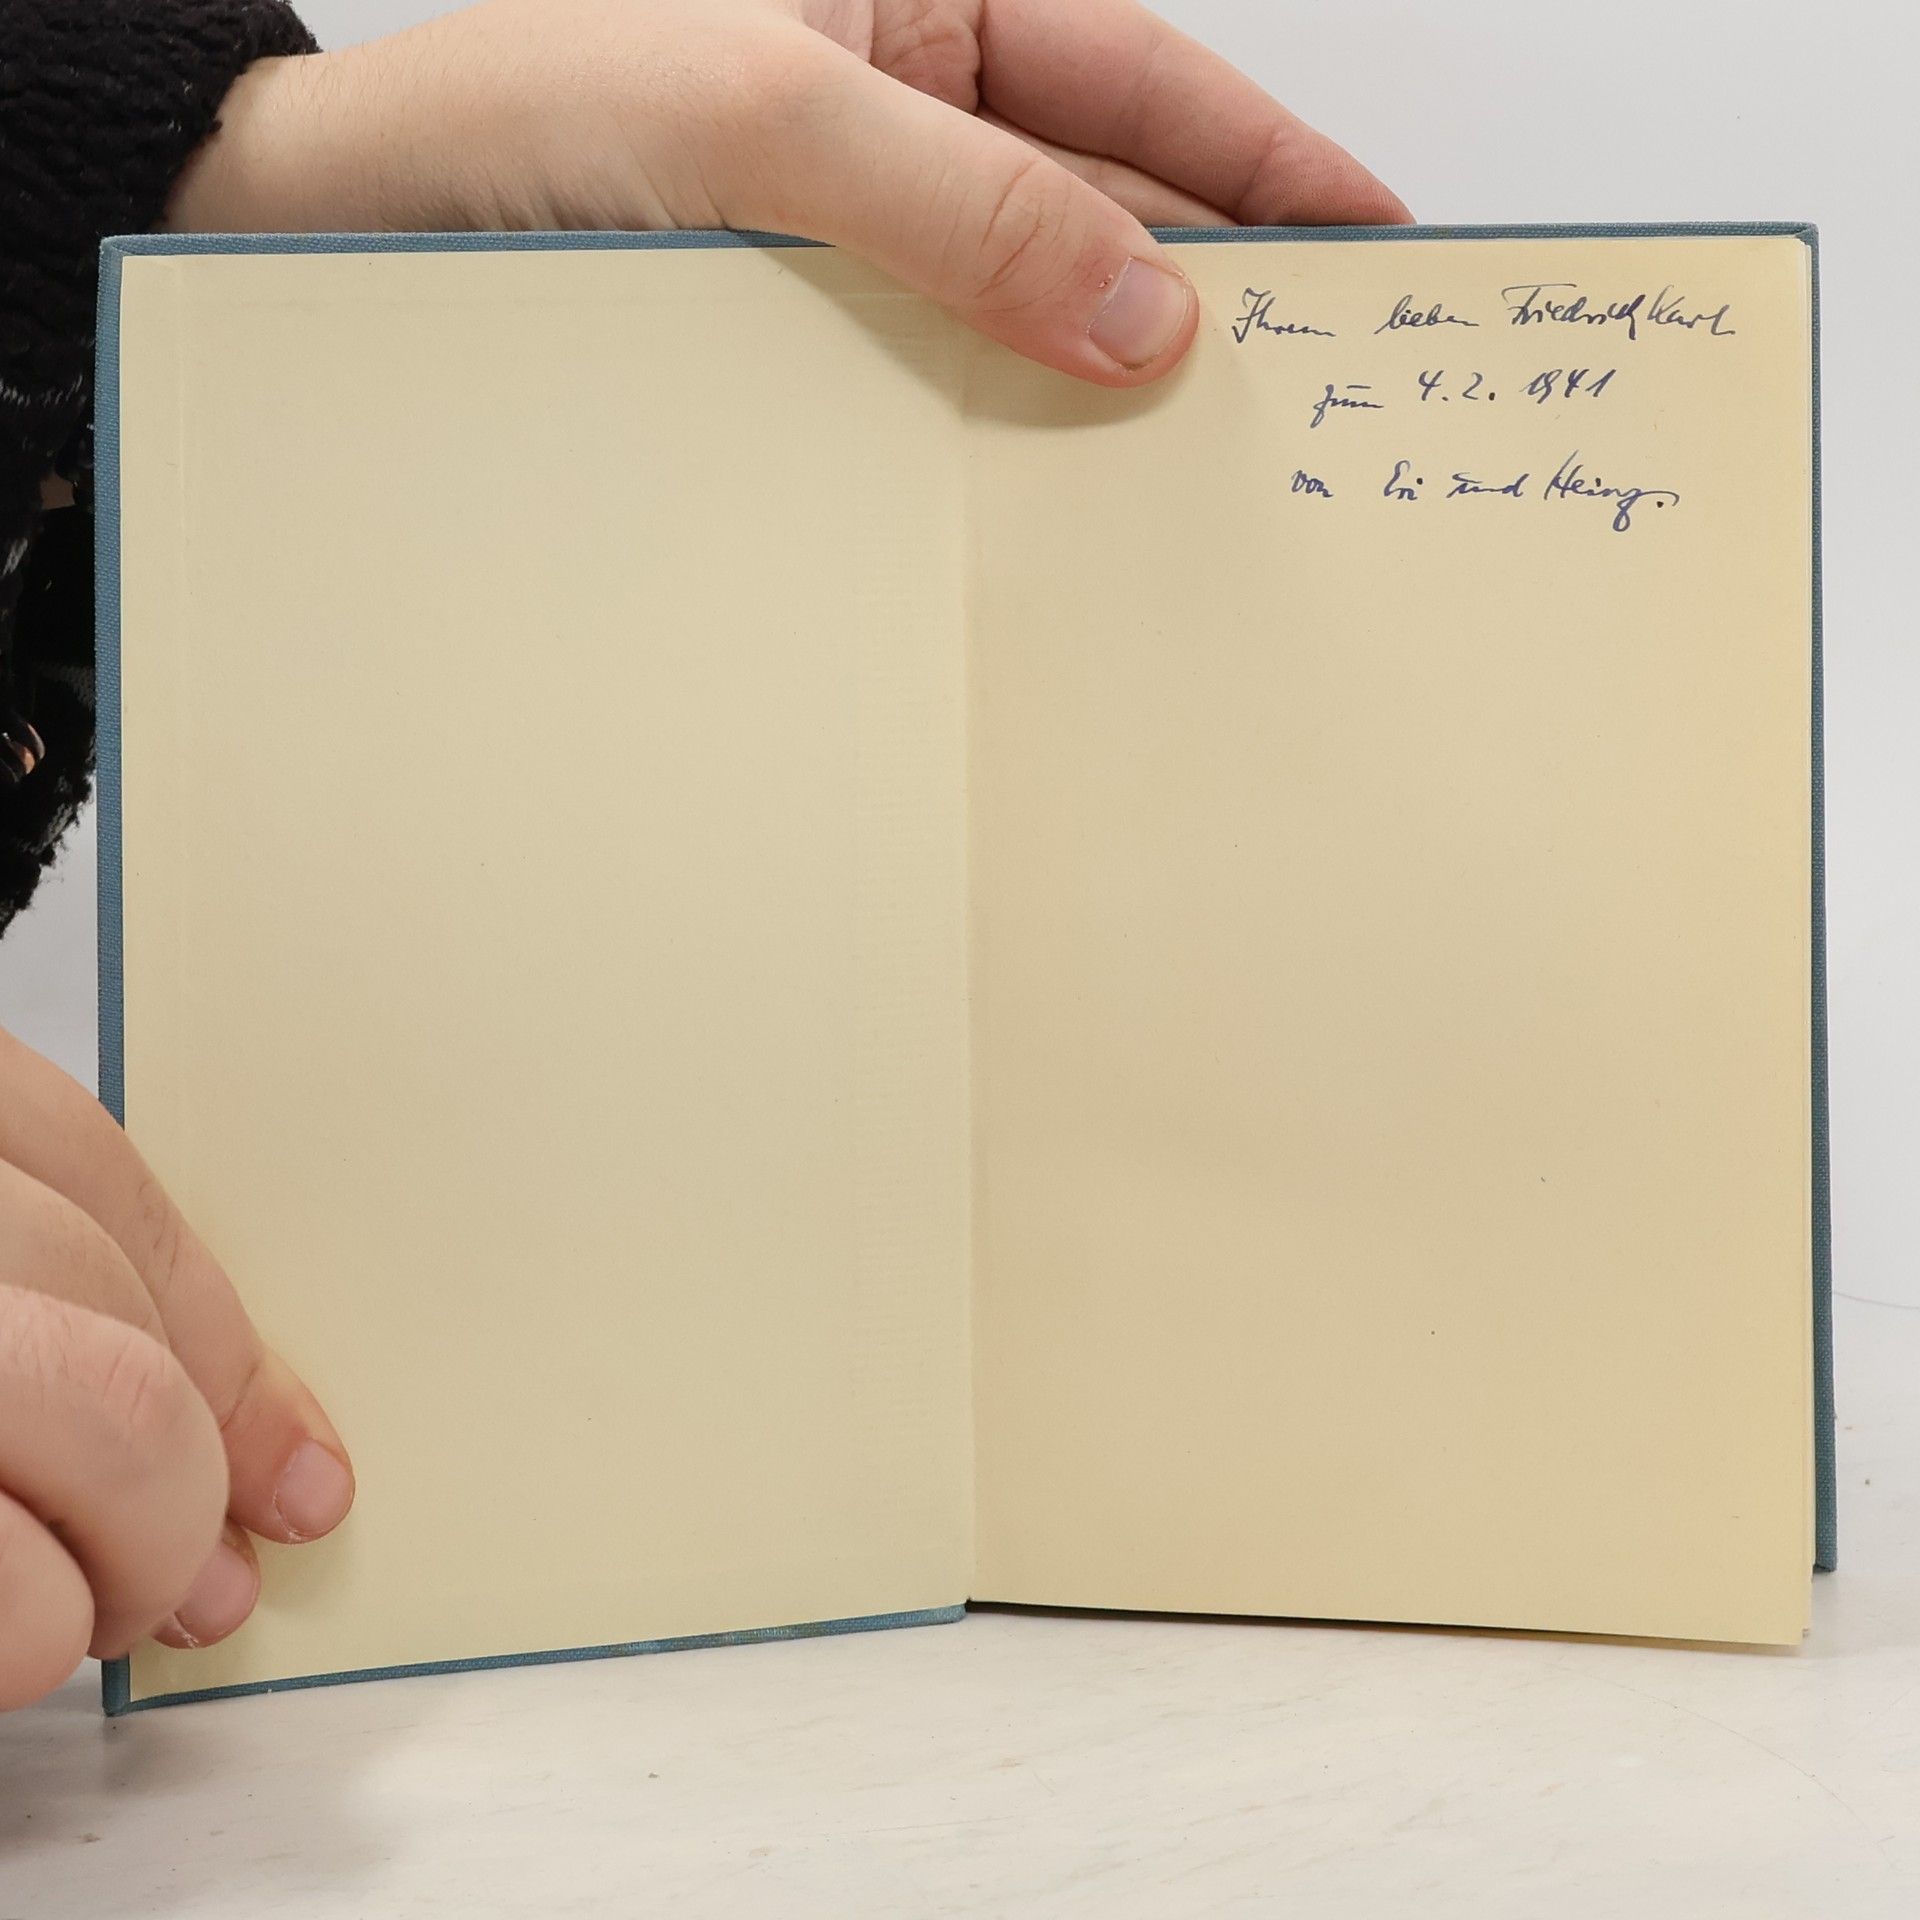 Ihrem lieben Friedrich Karl
zum 4.2. 1941
von Evi und Heinz.